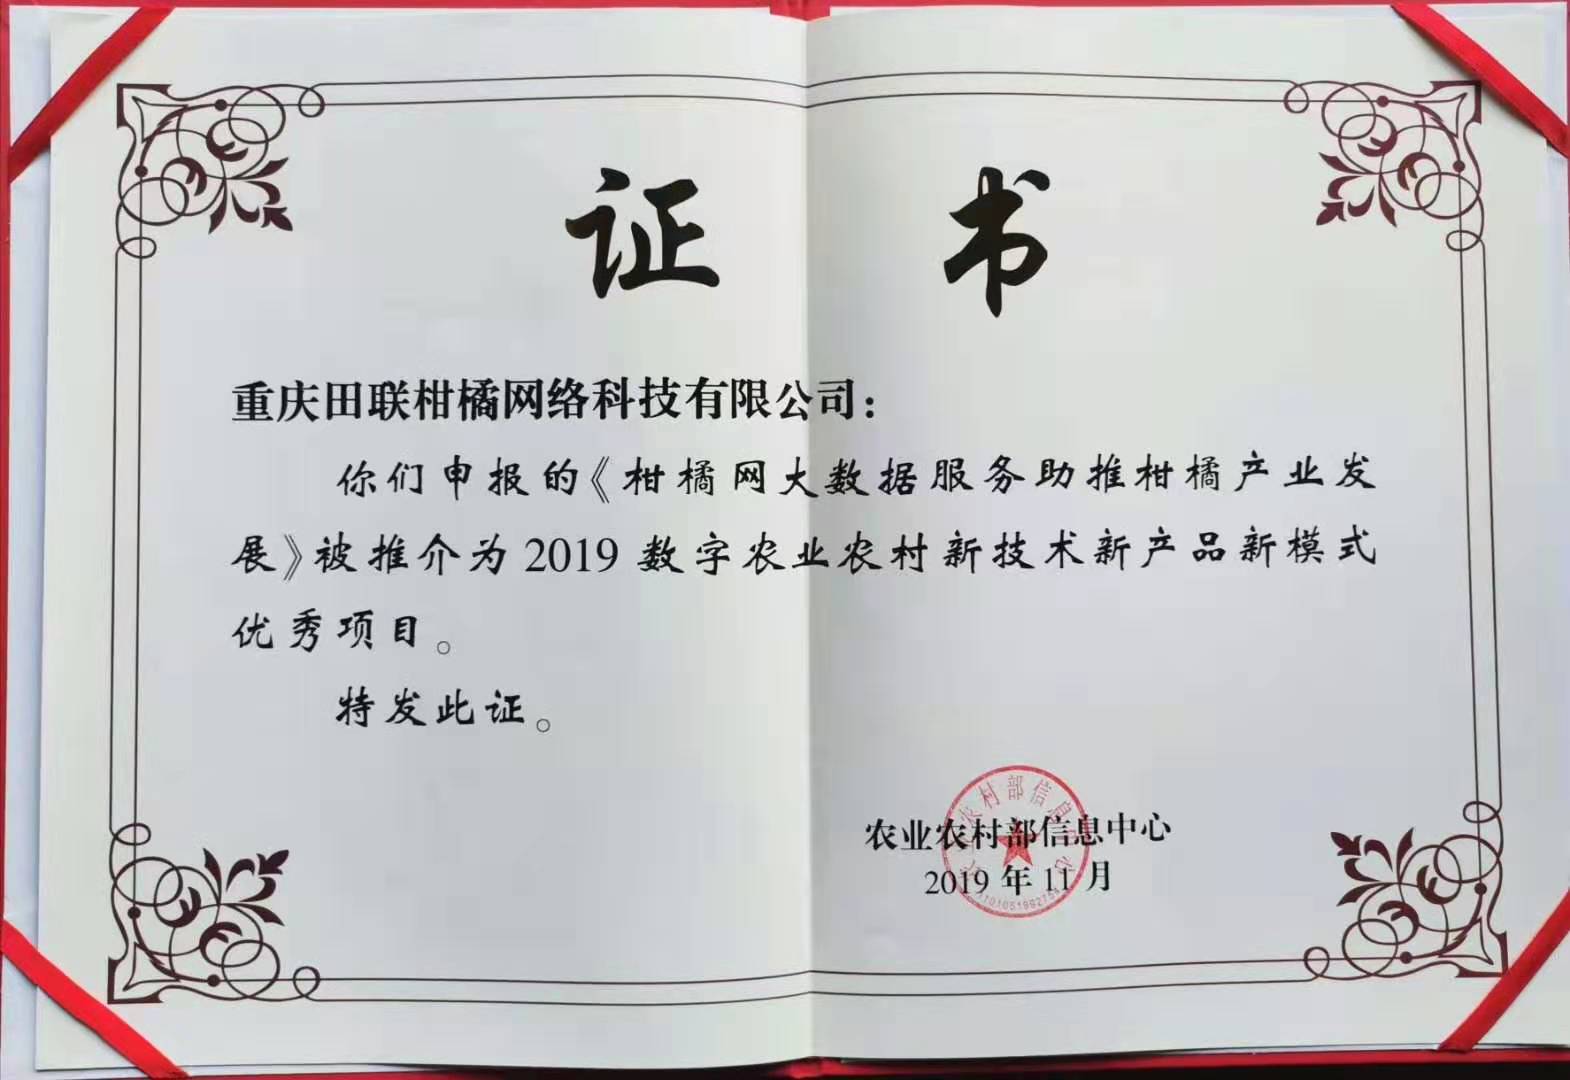 证书
重庆田联柑橘网络科技有限公司：
你们申报的《柑橘网大数据服务助推柑橘产业发
展》被推介为2019数字农业农村新技术新产品新模式
优秀项目。
特发此证。
农业农村部信息中心
2019年11月
农业农村部信息中心